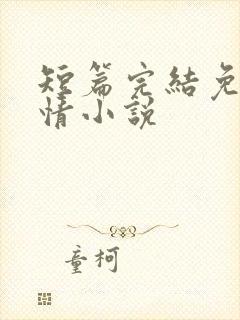 短篇完結免
情小說
童柯